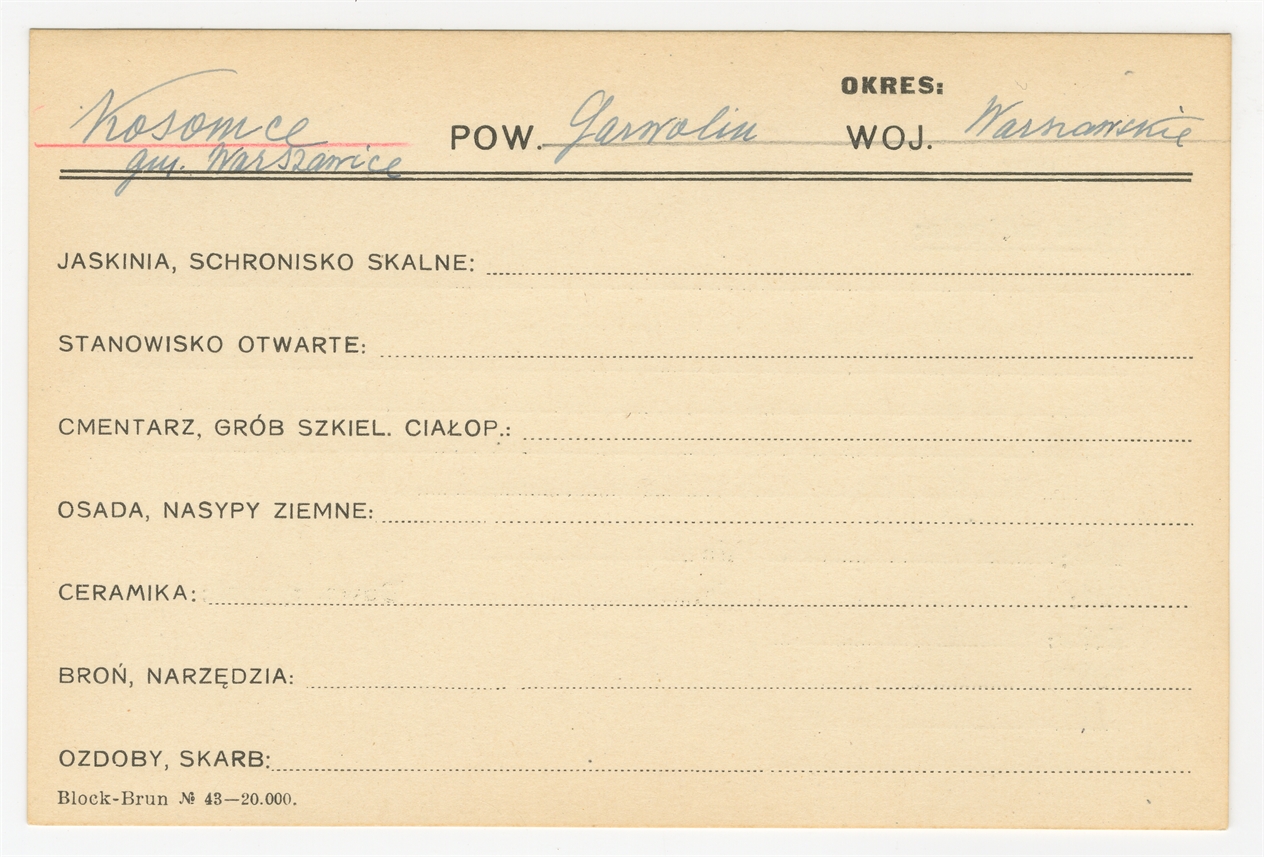 OKRES:
Kosomce POW. Garwolin WOJ. Warszawskie
gm. Warszawice
JASKINIA, SCHRONISKO SKALNE:
STANOWISKO OTWARTE:
CMENTARZ, GRÓB SZKIEL. CIAŁOP.:
OSADA, NASYPY ZIEMNE:
CERAMIKA:
BROŃ, NARZĘDZIA:
OZDOBY, SKARB:
Block-Brun № 43—20.000.